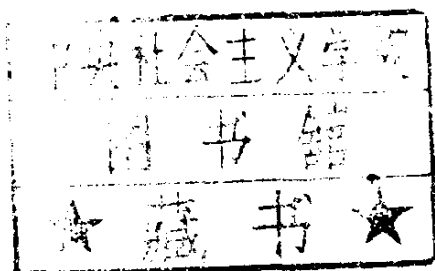 社会主义学院
图书馆
★藏书★